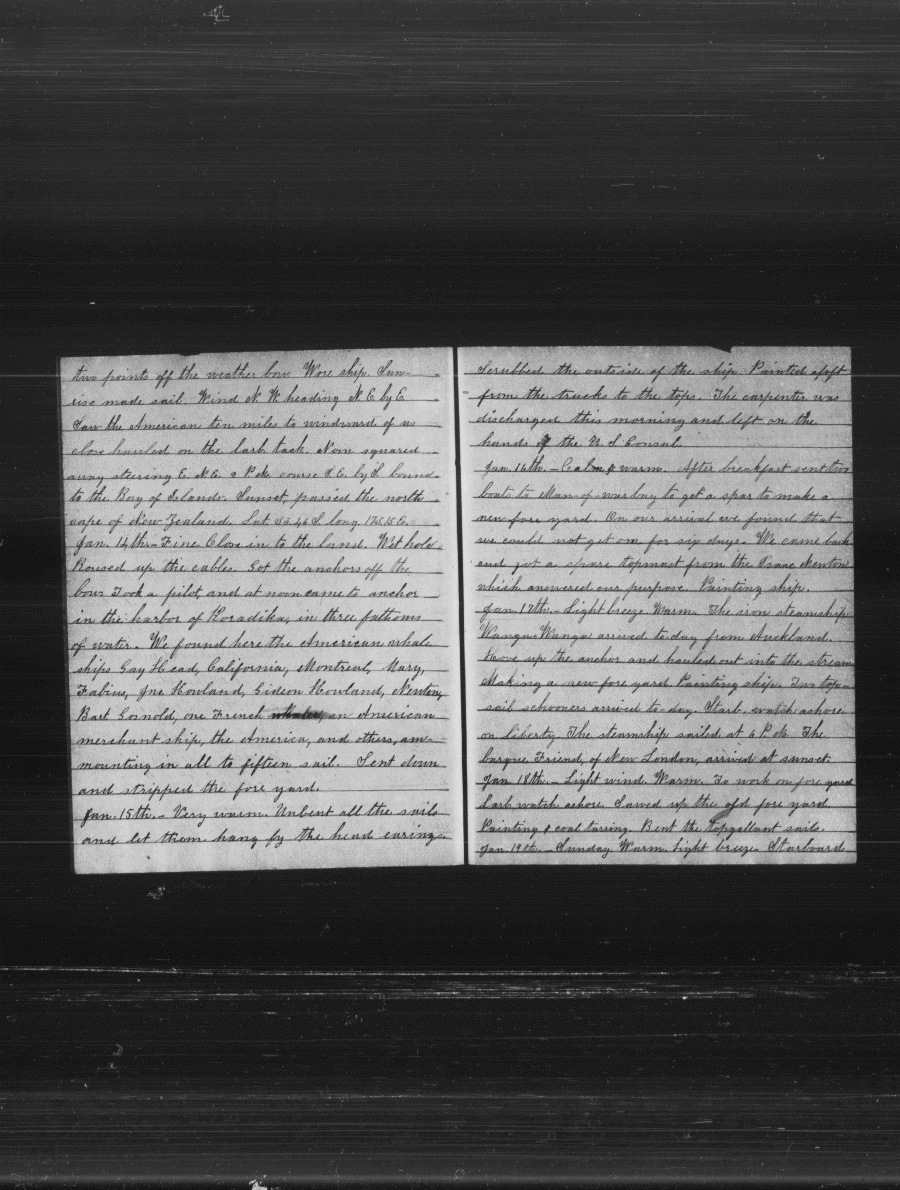 two points off the weather bow. Wore ship. Sun-
rise made sail. Wind N. W. heading N. E. by E.
Saw the American ten miles to windward of us
close hauled on the larb. tack. Noon squared
away steering E. N. E. 2 P. M. course S. E. by S. bound
to the Bay of Islands. Sunset, passed the north
cape of New Zealand. Lat. 33.46 S. long. 173.15 E.
Jan. 14th. - Fine. Close in to the land.
Roused up the cables. Got the anchors off the
bow. Took a pilot, and at noon came to anchor
in the harbor of Koradika, in three fathoms
of water. We found here the American whale
ships Gay Head, California, Montreal, Mary,
Fabius, Jno Howland, Gideon Howland, Newton,
Bart Gosnold, one French whaler, an American
merchant ship, the America, and others, am-
mounting in all to fifteen sail. Sent down
and stripped the fore yard.
Jan. 15th. - Very warm. Unbent all the sails
and let them hang by the head earings
Scrubbed the outside of the ship. Painted aloft
from the trucks to the tops. The carpenter was
discharged this morning and left on the
hands of the U. S. Consul.
Jan. 16th. - Calm & warm. After breakfast sent two
boats to Man-of-war bay to get a spar to make a
new fore yard. On our arrival we found that
we could not get one for six days. We came back
and got a spare topmast from the Isaac Newton
which answered our purpose. Painting ship.
Jan. 17th. - Light breeze. Warm. The iron steamship
Wanga Wanga arrived to-day from Auckland.
Hove up the anchor and hauled out into the stream
Making a new fore yard. Painting ship. Two top-
sail schooners arrived to-day. Starb. watch ashore
on liberty. The steamship sailed at 6 P. M. The
barque Friend, of New London, arrived at sunset.
Jan. 18th. - Light wind. Warm. To work on fore yard
Larb. watch ashore. Sawed up the old fore yard.
Painting & coal taring. Bent the topgallant sails.
Jan 19th. - Sunday. Warm. Light breeze. Starboard